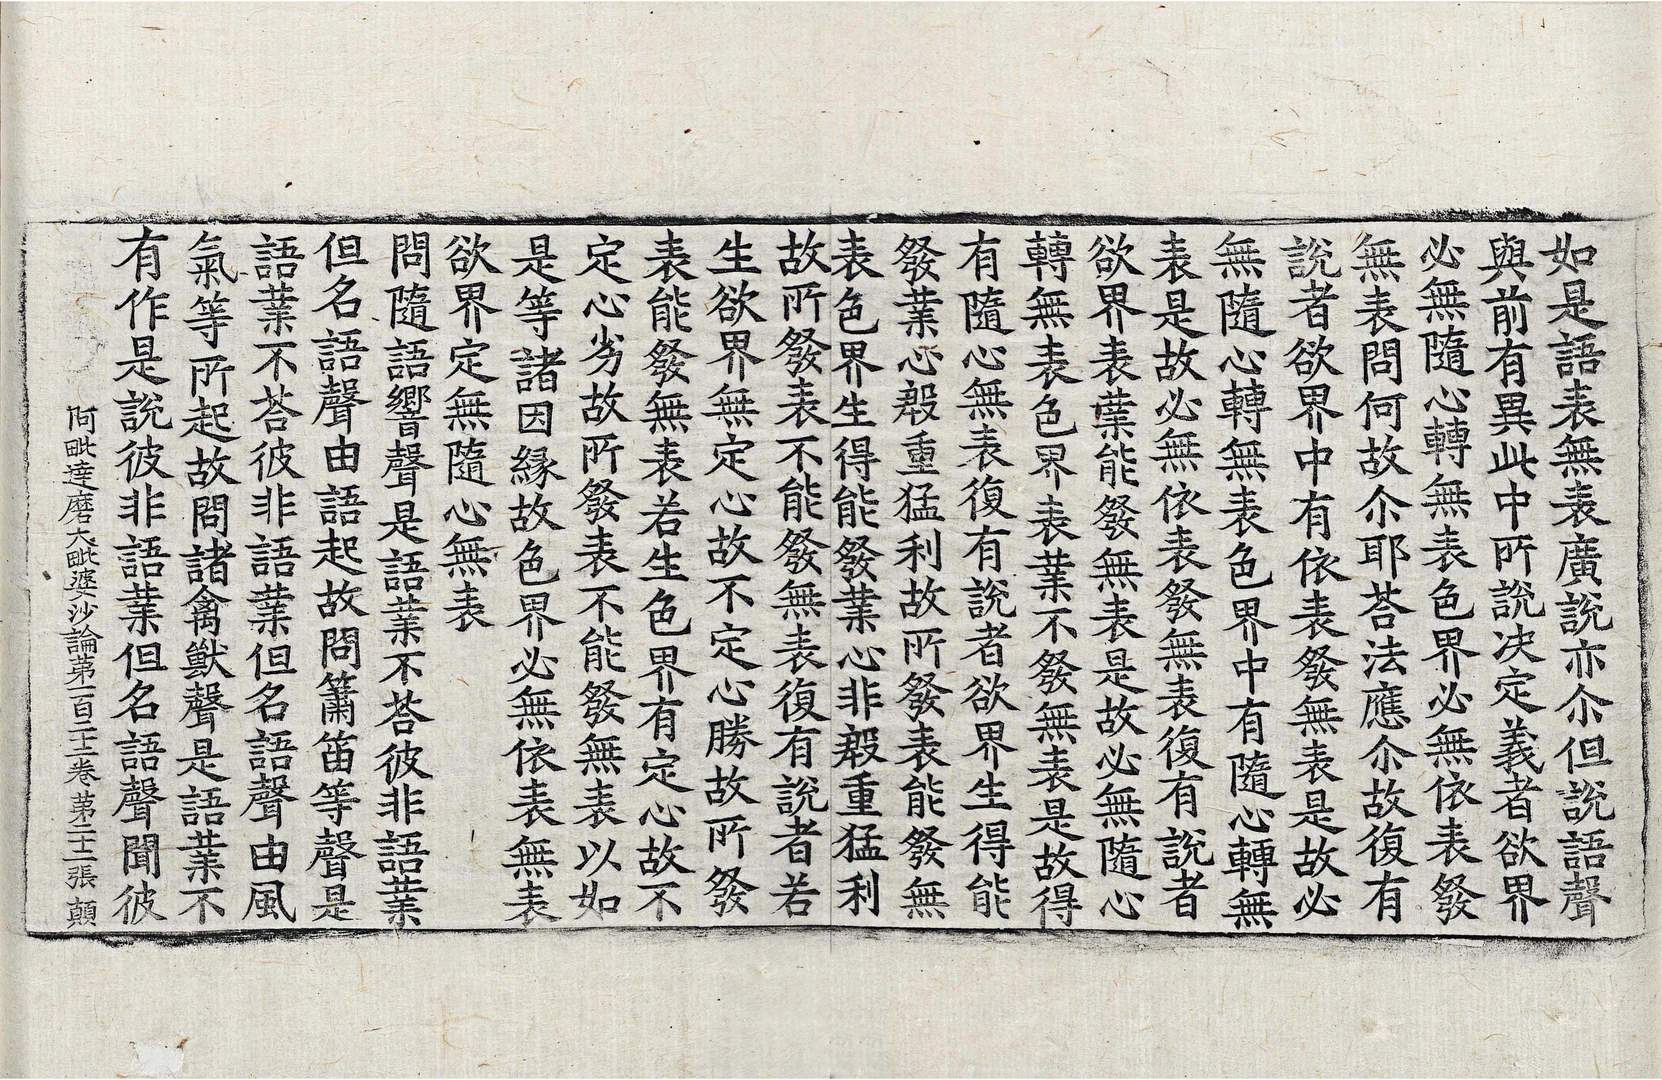 如是語表無表廣說亦尒但說語聲
與前有異此中所說决定義者欲界
必無隨心轉無表色界必無依表發
無表問何故尒耶荅法應尒故復有
說者欲界中有依表發無表是故必
無隨心轉無表色界中有隨心轉無
表是故必無依表發無表復有說者
欲界表業能發無表是故必無隨心
轉無表色界表業不發無表是故得
有隨心無表復有說者欲界生得能
發業心殷重猛利故所發表能發無
表色界生得能發業心非殷重猛利
故所發表不能發無表復有說者若
生欲界無定心故不定心勝故所發
表能發無表若生色界有定心故不
定心劣故所發表不能發無表以如
是等諸因緣故色界必無依表無表
欲界定無隨心無表
問隨語響聲是語業不荅彼非語業
但名語聲由語起故問簫笛等聲是
語業不荅彼非語業但名語聲由風
氣等所起故問諸禽獸聲是語業不
有作是說彼非語業但名語聲聞彼
阿毗達磨大毗婆沙論第一百二十二卷第二十二張 顛